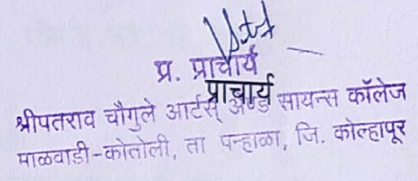 प्र. प्राचार्य
प्राचार्य
श्रीपतराव चौगुले आर्टस् अँण्ड सायन्स कॉलेज
माळवाडी-कोतोली, ता पन्हाळा, जि. कोल्हापूर